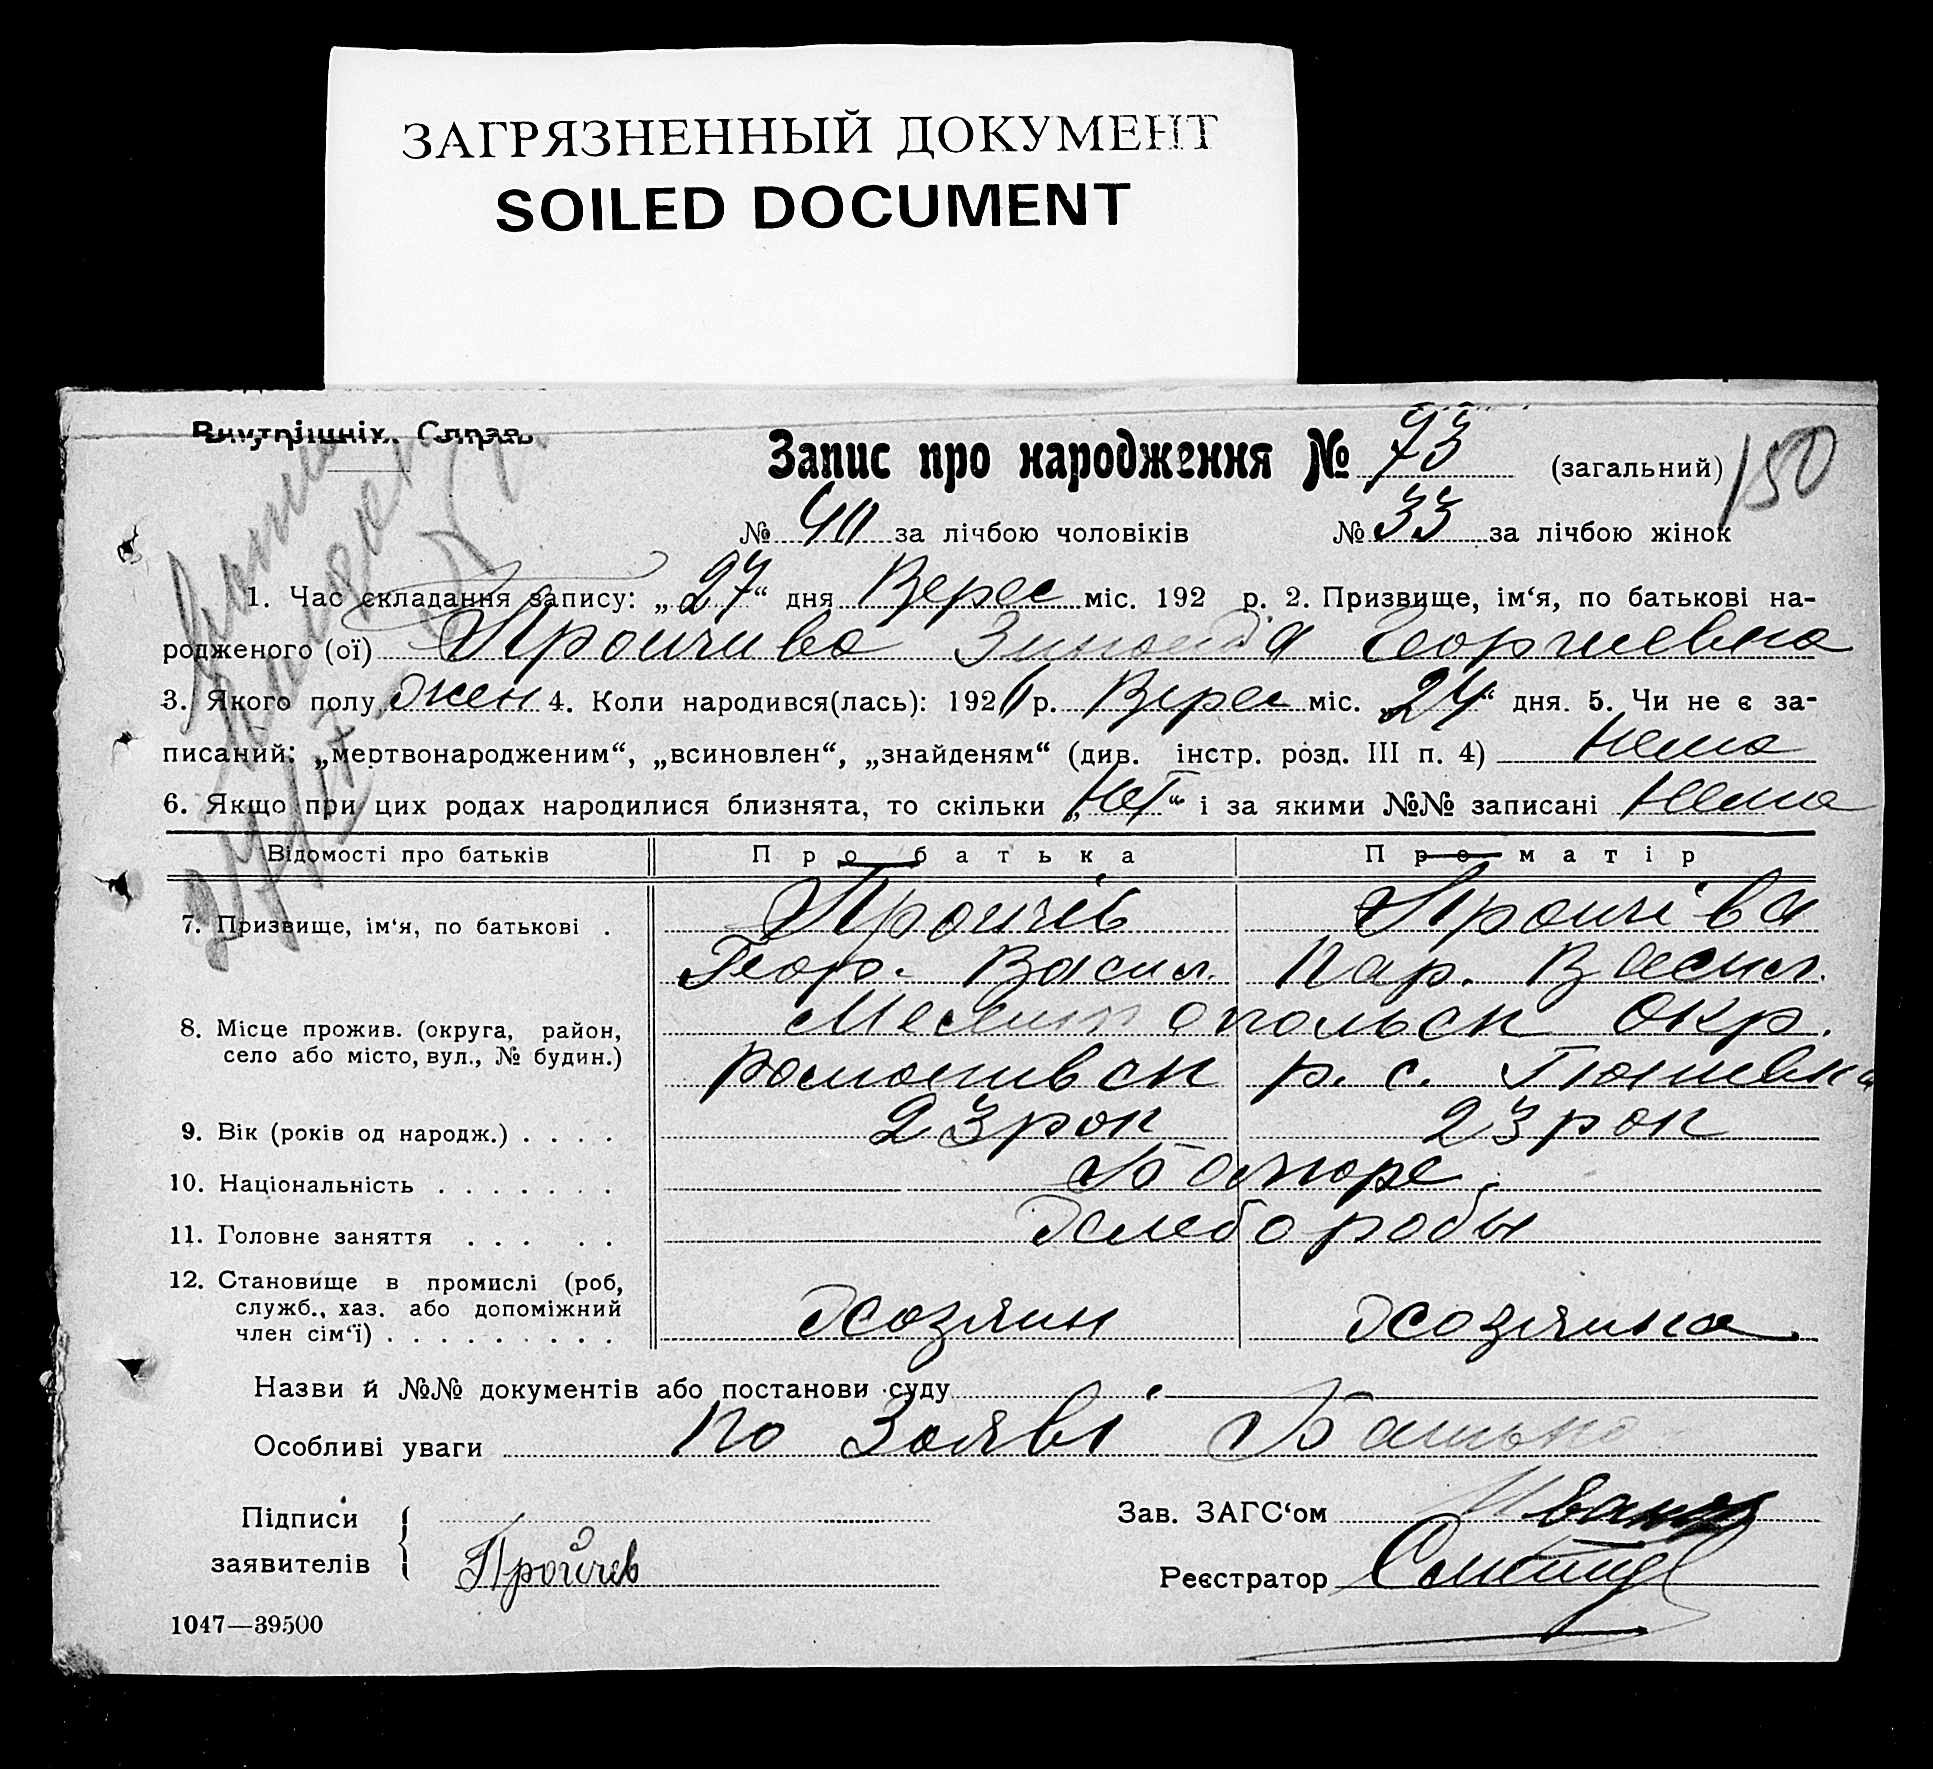 ЗАГРЯЗНЕННЫЙ ДОКУМЕНТ
SOILED DOCUMENT
Внутрішніх Справ
Запис про народження № 73 (загальний) 150
№ 40 за лічбою чоловіків № 33 за лічбою жінок
1. Час складання запису: „27“ дня Верес міс. 192 р. 2. Призвище, ім‘я, по батькові на-
родженого (ої) Пройчива Зинаида Георгиевна
3. Якого полу жен 4. Коли народився(лась): 192 р. Верес міс. „24“ дня. 5. Чи не є за-
писаний: „мертвонародженим“, „всиновлен“, „знайденям“ (див. інстр. розд. III п. 4) Нема
6. Якщо при цих родах народилися близнята, то скільки „Нет“ і за якими №№ записані Нема
Відомості про батьків Про батька Про матір
7. Призвище, ім‘я, по батькові . Пройчів Пройчіва
Геор. Васил. Пар. Васил.
8. Місце прожив. (округа, район, Мелитопольск Окр.
село або місто, вул., № будин.) Романивск р. с. Гюневка
9. Вік (років од народж.) . . . . 23 рок 23 рок
10. Національність . . . . . . .
11. Головне заняття . . . . . Хлеборобы
12. Становище в промислі (роб,
служб., хаз. або допоміжний
член сім‘ї) . . . . . . . . . Хозяин Хозяина
Назви й №№ документів або постанови суду
Особливі уваги По Заяві Батько
Підписи
заявителів Пройчев
Зав. ЗАГС‘ом
Реєстратор
1047—39500